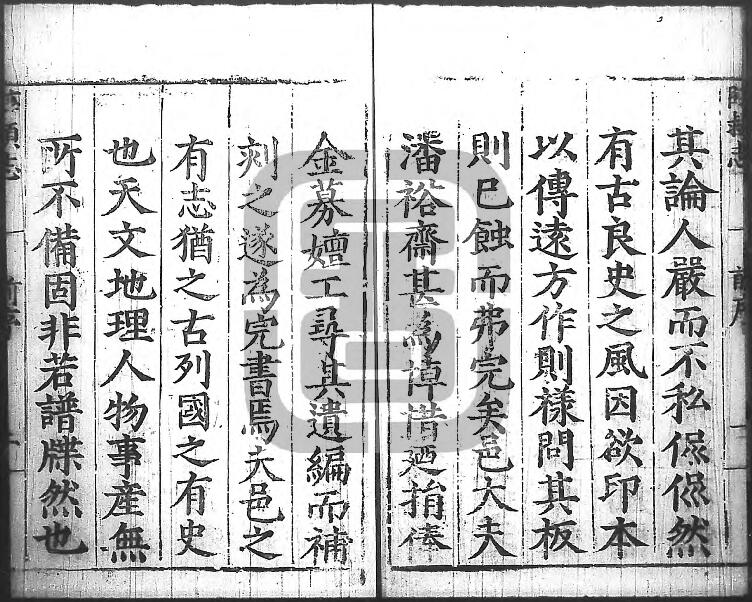 其論人嚴而不私㒒㒒然
有古良史之風因欲印本
以傳遠方作則樣問其板
則已蝕而弗完矣邑大夫
潘裕齋甚為悼惜廼捐俸
金募嬗工尋其遺編而補
刻之遂為完書焉夫邑之
有志猶之古列國之有史
也天文地理人物事產無
所不備固非若譜牒然也